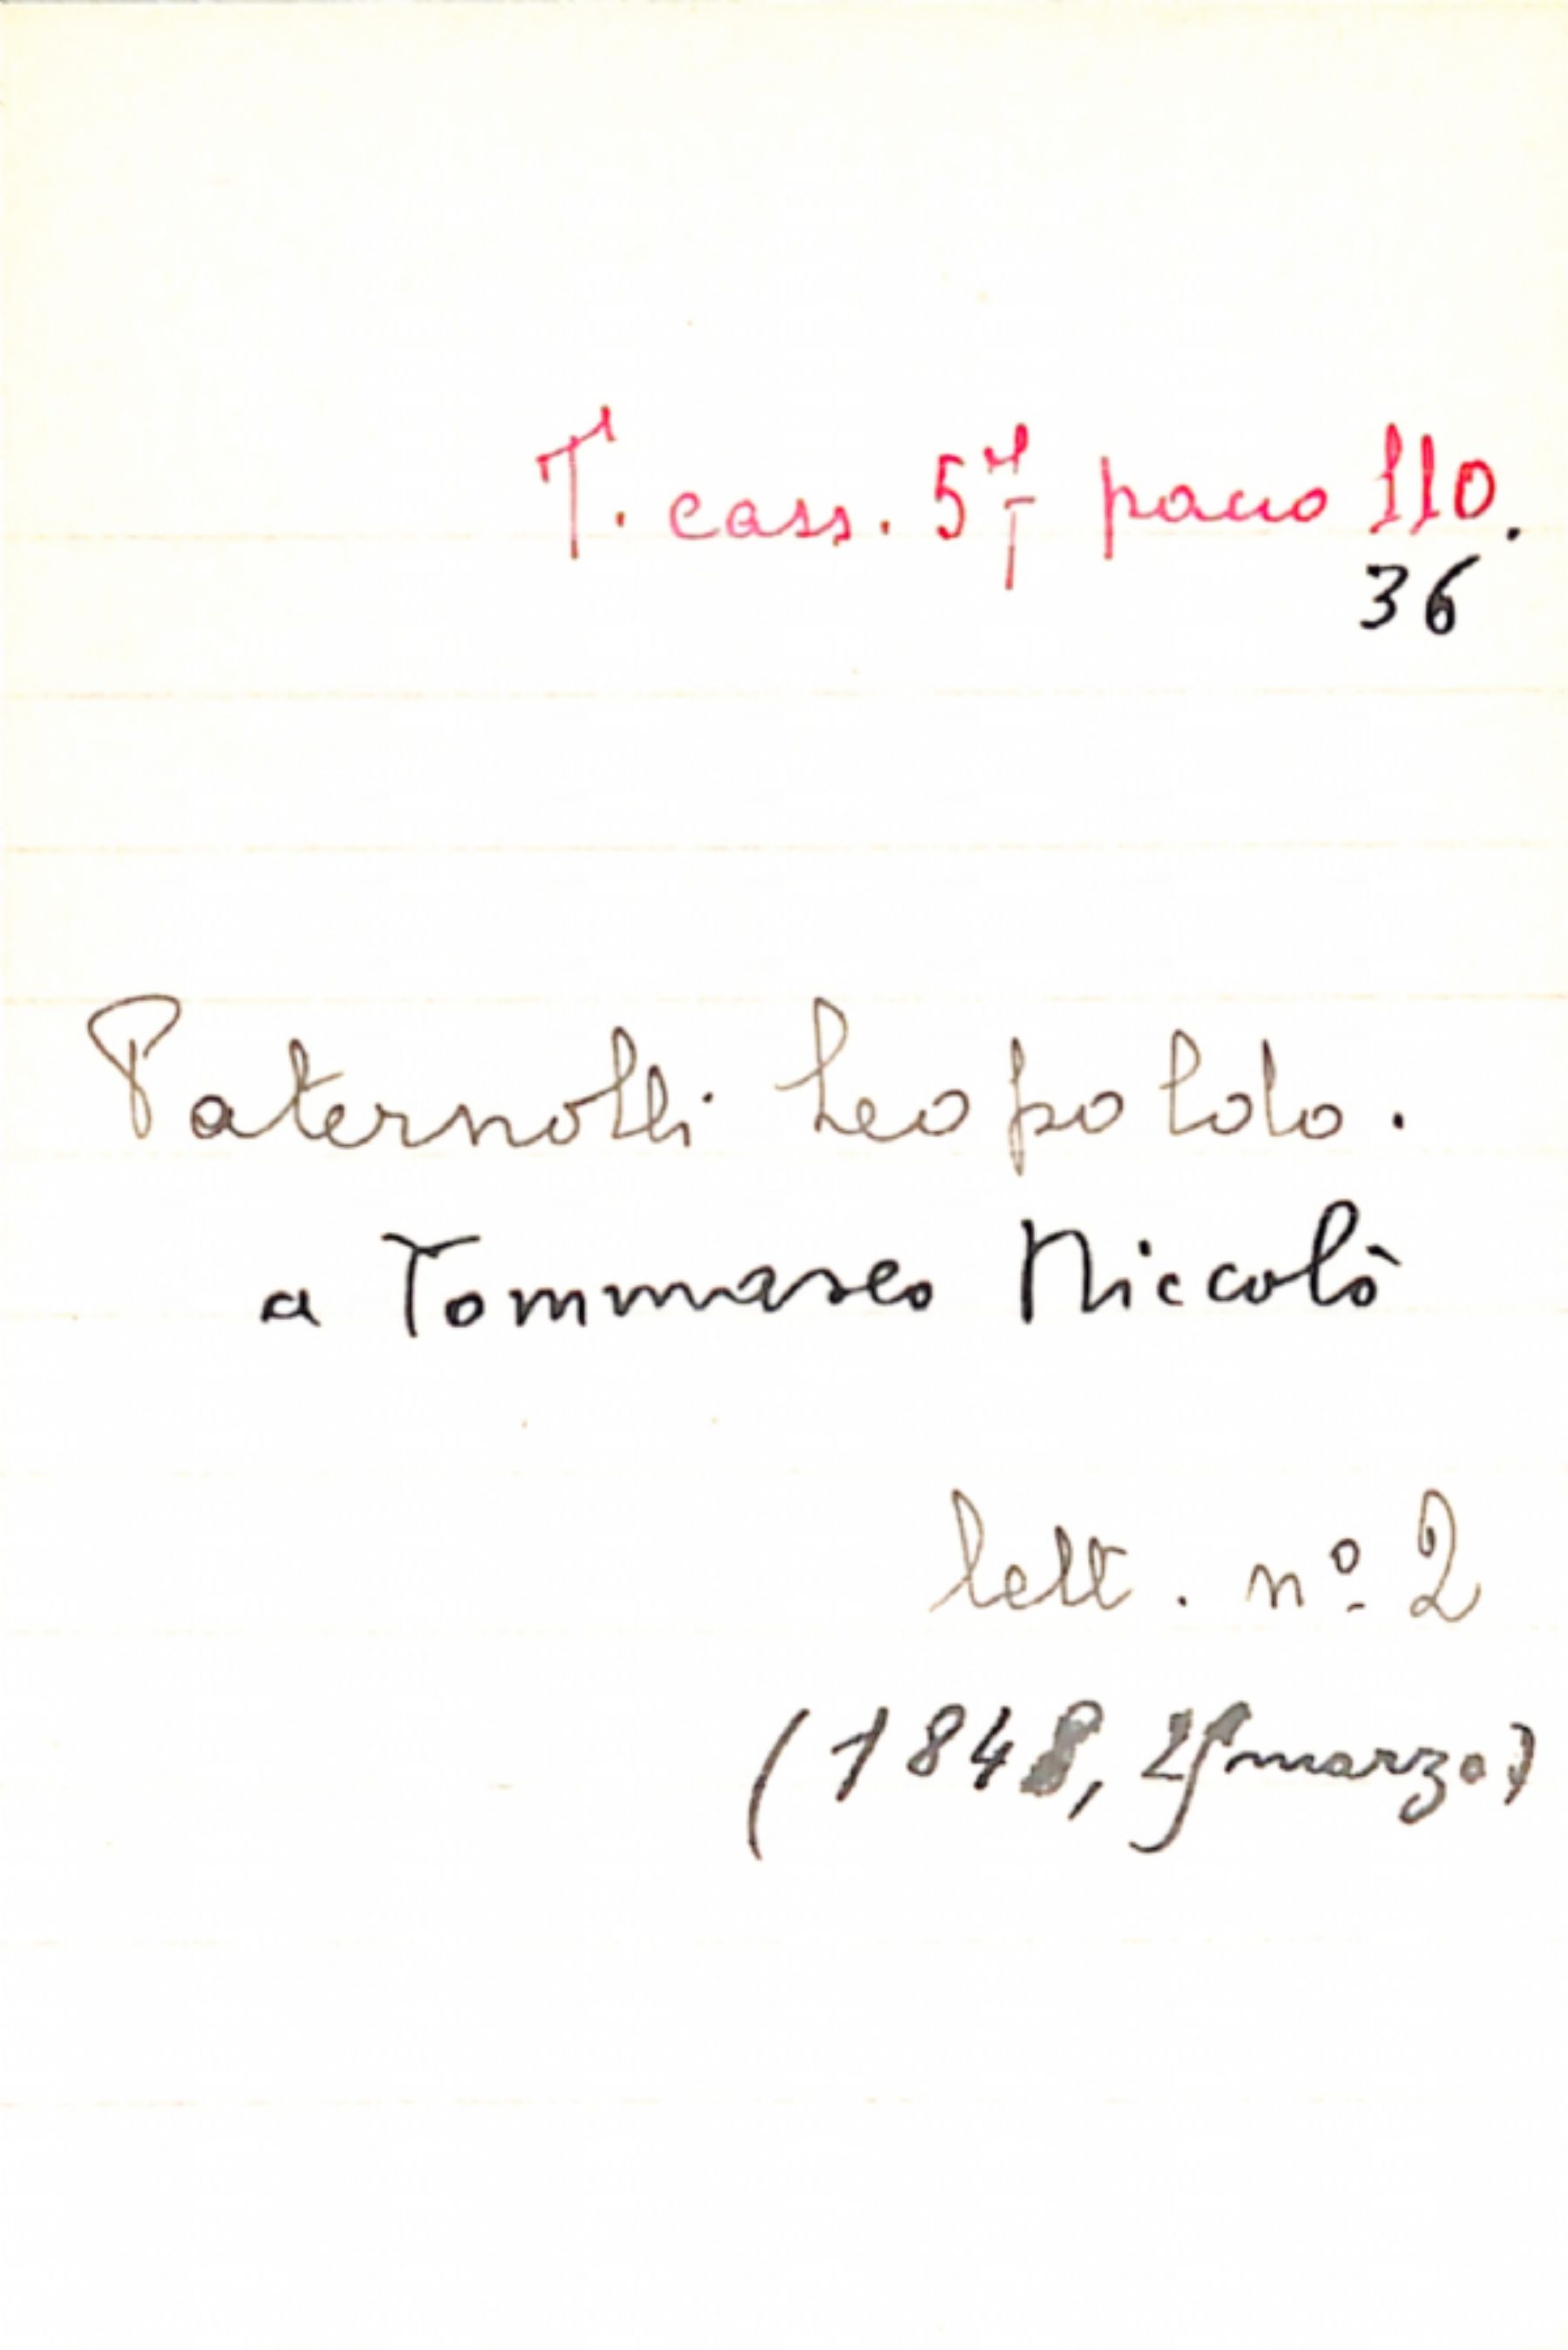 T. cass. 5ª pacco 110.
36
Paternolli Leopoldo.
a Tommaseo Niccolò
lett. nº 2
(1848, marzo)